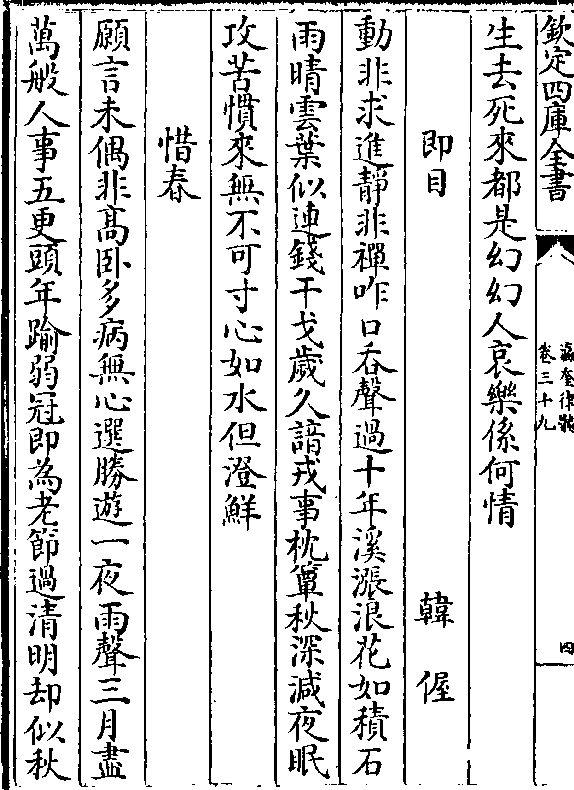 欽定四庫全書
瀛奎律髓
卷三十九
四
生去死來都是幻幻人哀樂係何情
即目　韓偓
動非求進靜非禪咋口吞聲過十年溪漲浪花如積石
雨晴雲葉似連錢干戈歲久諳戎事枕簟秋深減夜眠
攻苦慣來無不可寸心如水但澄鮮
惜春
願言未偶非高卧多病無心選勝遊一夜雨聲三月盡
萬般人事五更頭年踰弱冠即為老節過清明却似秋